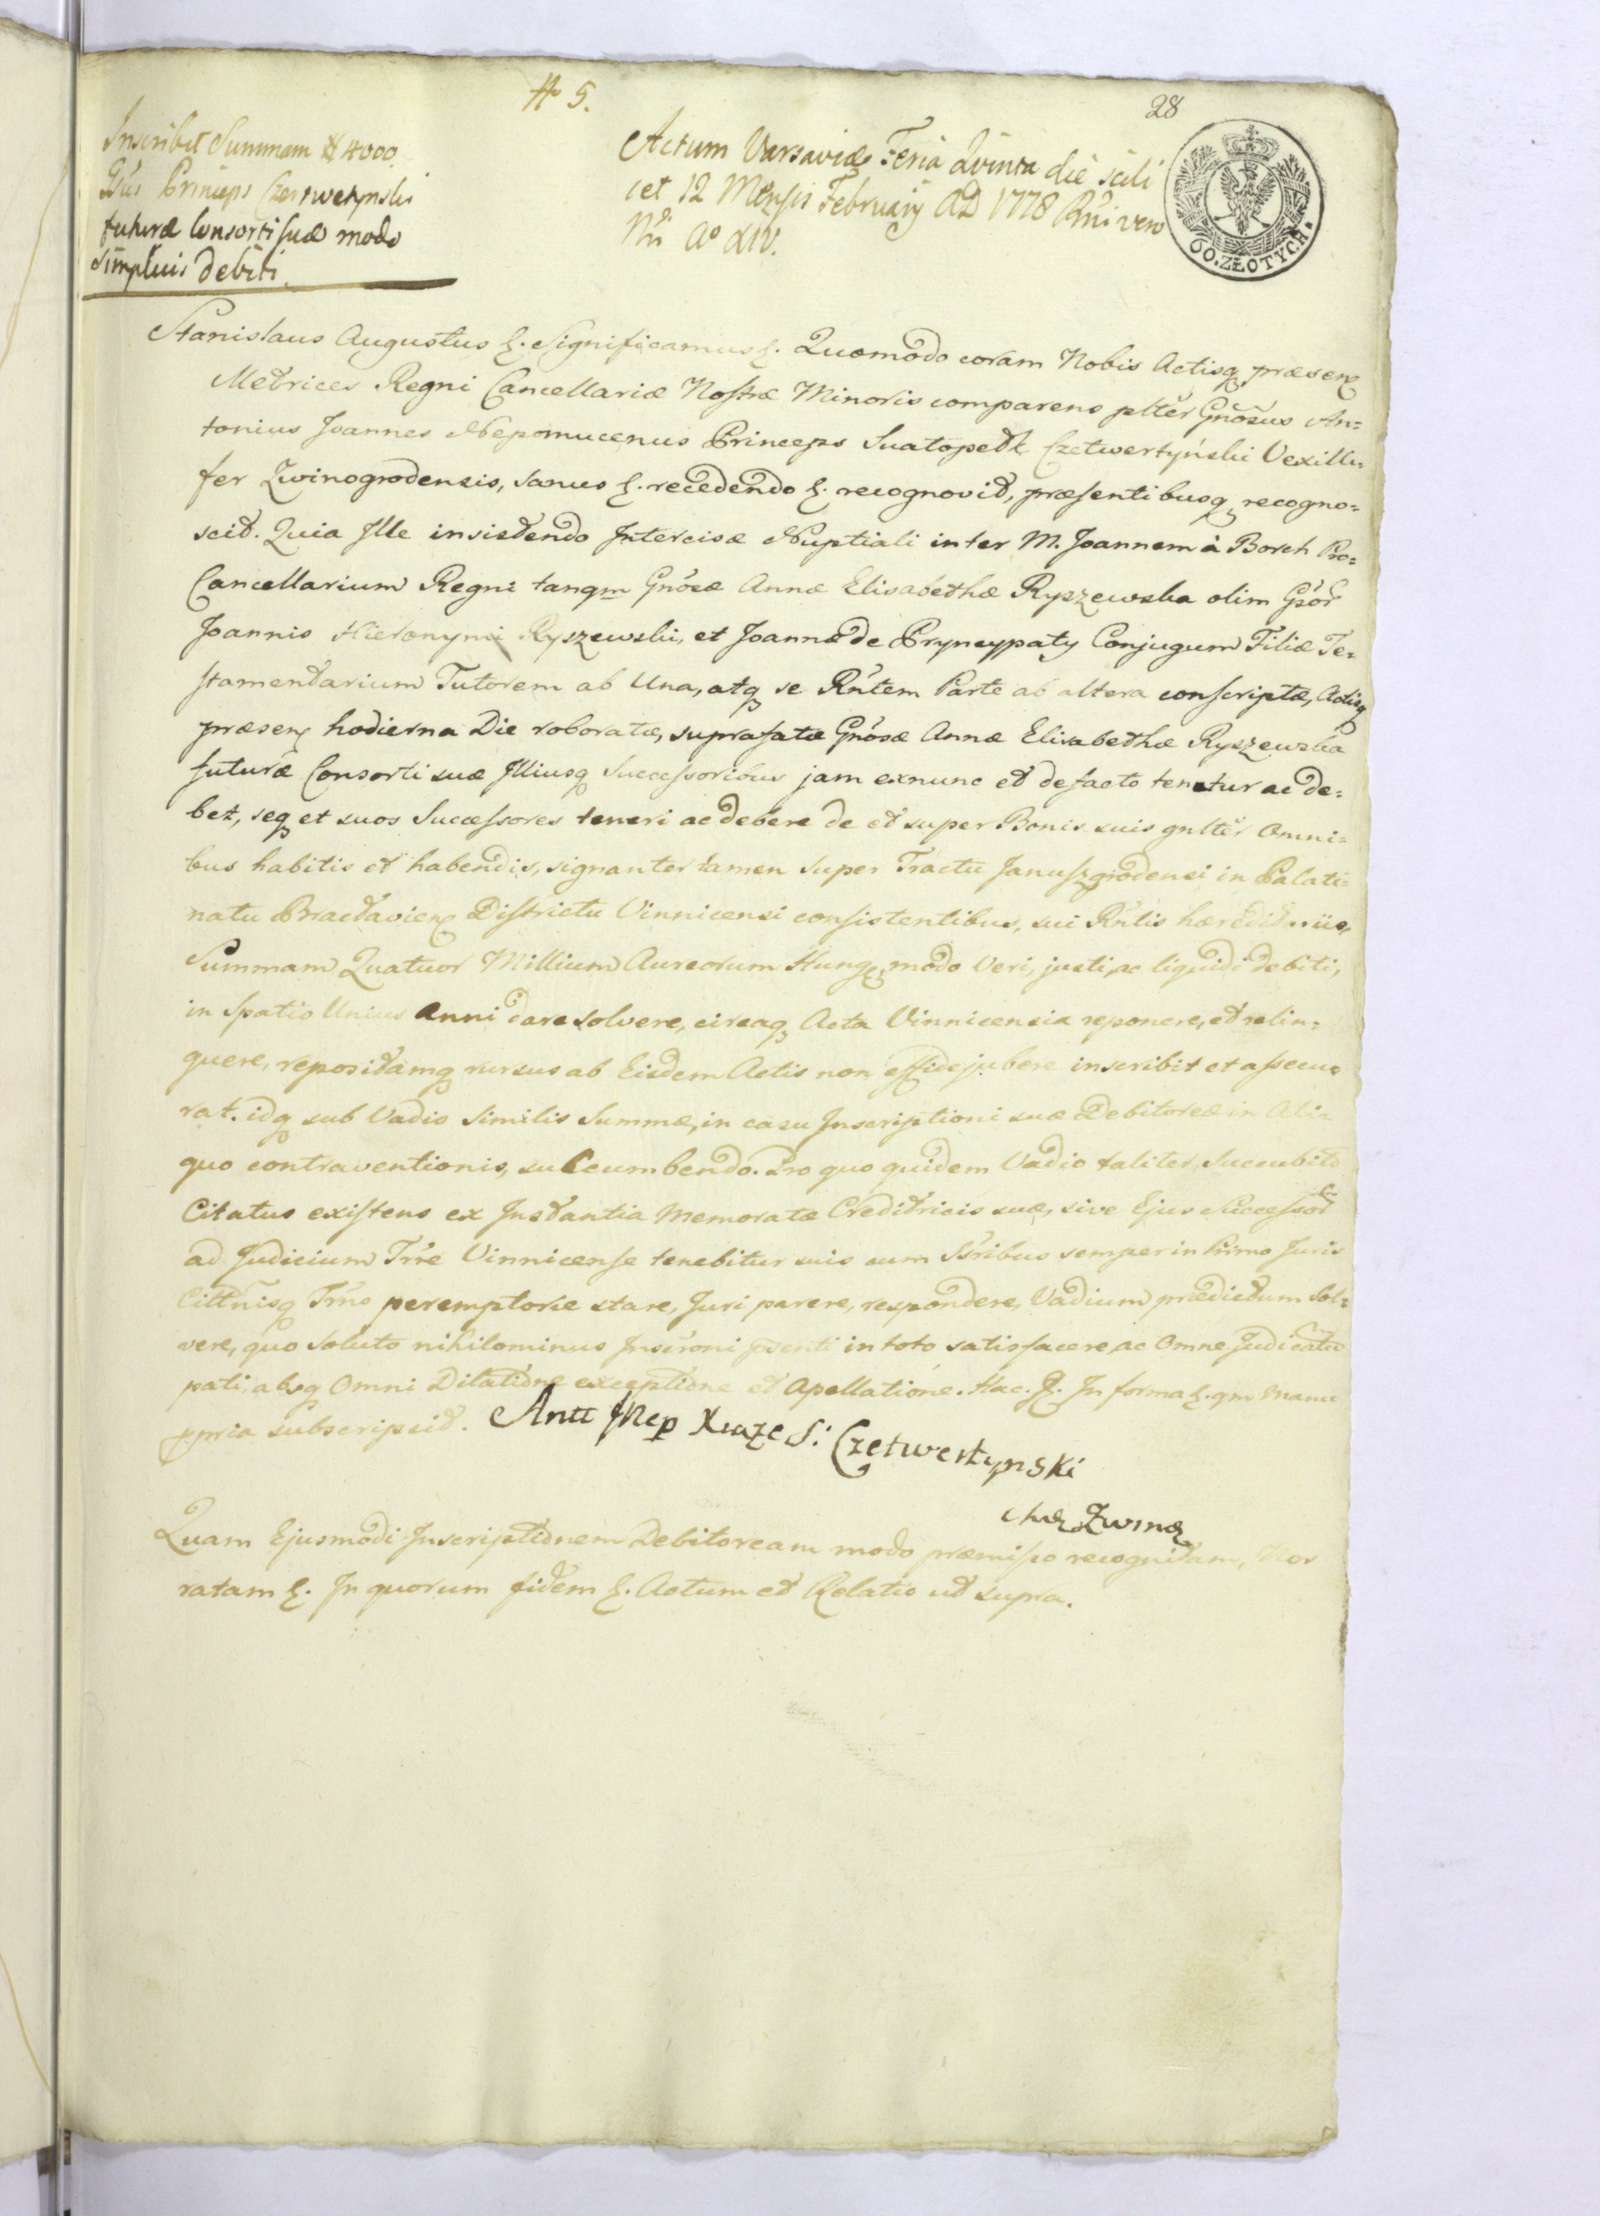 № 5.
28
Inscribit Summam # 4000
Gñs Princeps Czetwertynski
futuræ Consorti suæ modo
simplicis debiti.
Actum Varsaviæ Feria Quinta die scili
cet 12 Mensis February AD 1778 Rñi vero
Nri Aº XIV.
60. ZŁOTYCH.
Stanislaus Augustus &. Significamus &. Quomodo coram Nobis Actisq præsenz
Metrices Regni Cancellariæ Nostræ Minoris comparens plter Gnosus An=
tonius Joannes Nepomucenus Princeps Suatopełk Czetwertyński Vexilli=
fer Zwinogrodensis, sanus &. recedendo &. recognovit, præsentibusq recogno=
scit. Quia Ille insistendo Intercisæ Nuptiali inter M. Joannem à Borch Pro=
Cancellarium Regni tanqm Gnosæ Annæ Elisabethæ Ryszewska olim Gsor
Joannis Hieronymi Ryszewski, et Joannæ de Pryncypaty Conjugum Filiæ Te=
stamentarium Tutorem ab Una, atq se Rntem Parte ab altera conscriptæ, Actisq
præsenz hodierna Die roboratæ, suprafatæ Gnosæ Annæ Elisabethæ Ryszewska
futuræ Consorti suæ Illiusq Successoribus jam exnunc et defacto tenetur ac de=
bet, seq et suos Successores teneri ac debere de et super Bonis suis gnlter Omni=
bus habitis et habendis, signanter tamen super Tractu Januszgrodensi in Palati=
natu Bracłavienz Districtu Vinnicensi consistentibus, sui Rntis hæreditariis,
Summam Quatuor Millium Aureorum Hung. modo Veri, justi, ac liquidi debiti,
in Spatio Unius Anni dare solvere, circaq Acta Vinnicensia reponere, et relin=
quere, repositamq rursus ab Eisdem Actis non efficejubere inscribit et assecu=
rat. idq sub Vadio Similis Summæ, in casu Inscriptioni suæ Debitoreæ in Ali=
quo contraventionis, succumbendo. Pro quo quidem Vadio taliter Succubito
Citatus existens ex Instantia Memoratæ Creditricis suæ, sive Ejus Successor
ad Judicium Trre Vinnicense tenebitur suis cum Ssribus semper in Primo Juris
Cittnisq Trno peremptorie stare, Juri parere, respondere, Vadium prædictum Sol=
vere, quo Soluto nihilominus Inscroni psenti in toto satisfacere, ac Omne Judicatu
pati, absq Omni Dilatione exceptione et Apellatione. Hac. R. In forma &. qm manu
ppria subscripsit. Ant JNep Xiąze S: Czetwertynski
Chæ Zwinæ
Quam Ejusmodi Inscriptionem Debitoream modo præmisso recognitam, Nos
ratam &. In quorum fidem &. Actum et Relatio ut supra.